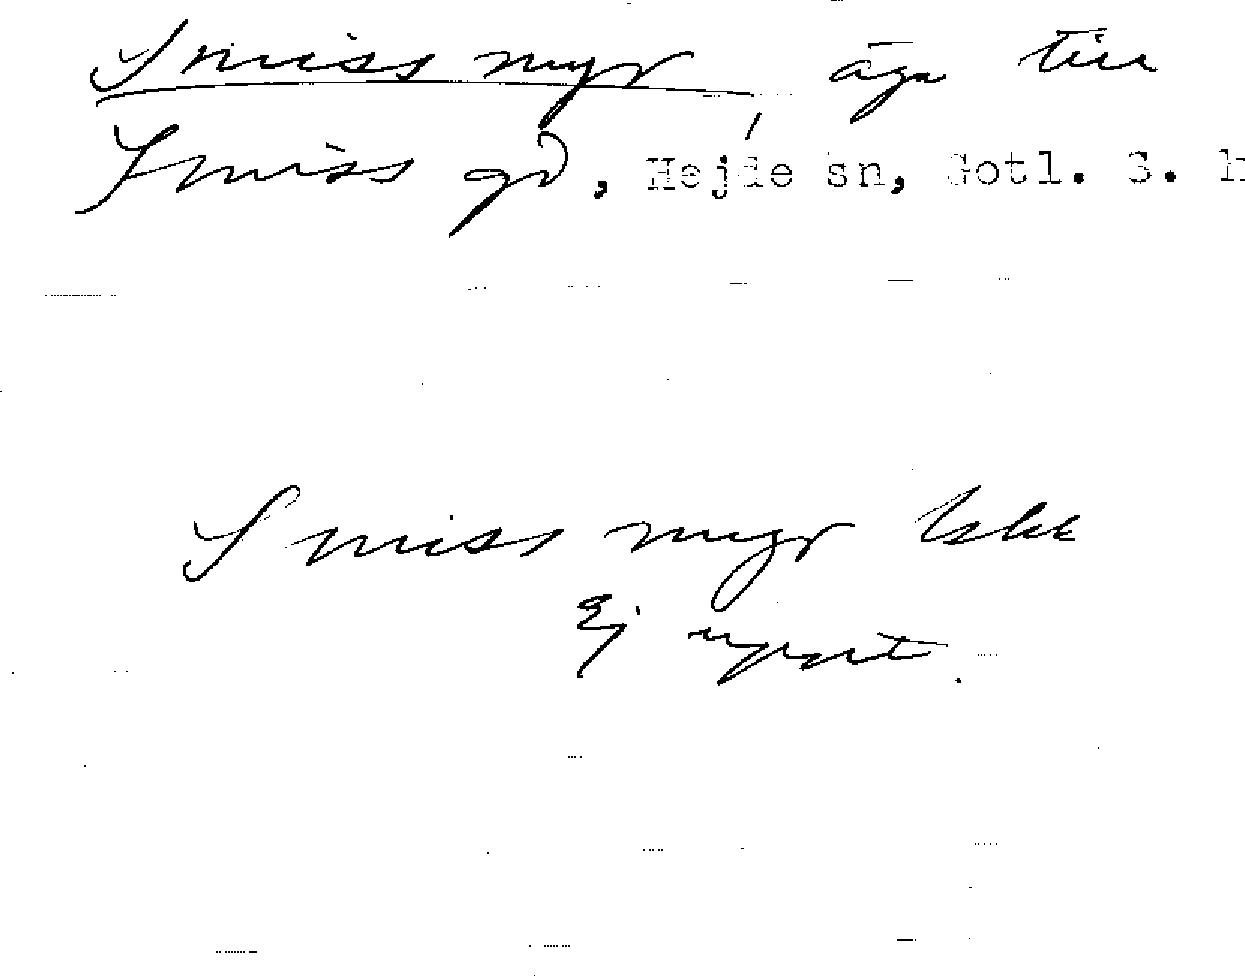 Smiss myr äga till
Smiss gd, Hejde sn, Gotl. S. h
Smiss myr
Ej uppart.